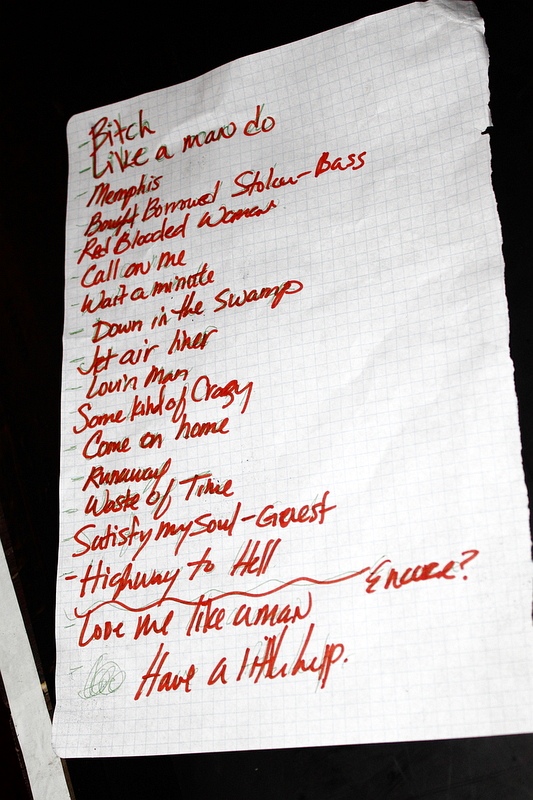 - Bitch
- Like a man do
- Memphis
- Bought Borrowed Stolen - Bass
- Red Blooded Woman
- Call on me
- Wait a minute
- Down in the Swamp
- Jet air liner
- Lovin Man
- Some kind of Crazy
- Come on home
- Runaway
- Waste of Time
- Satisfy my Soul - Guest
- Highway to Hell
Encore?
- Love me like a man
- Have a little help.